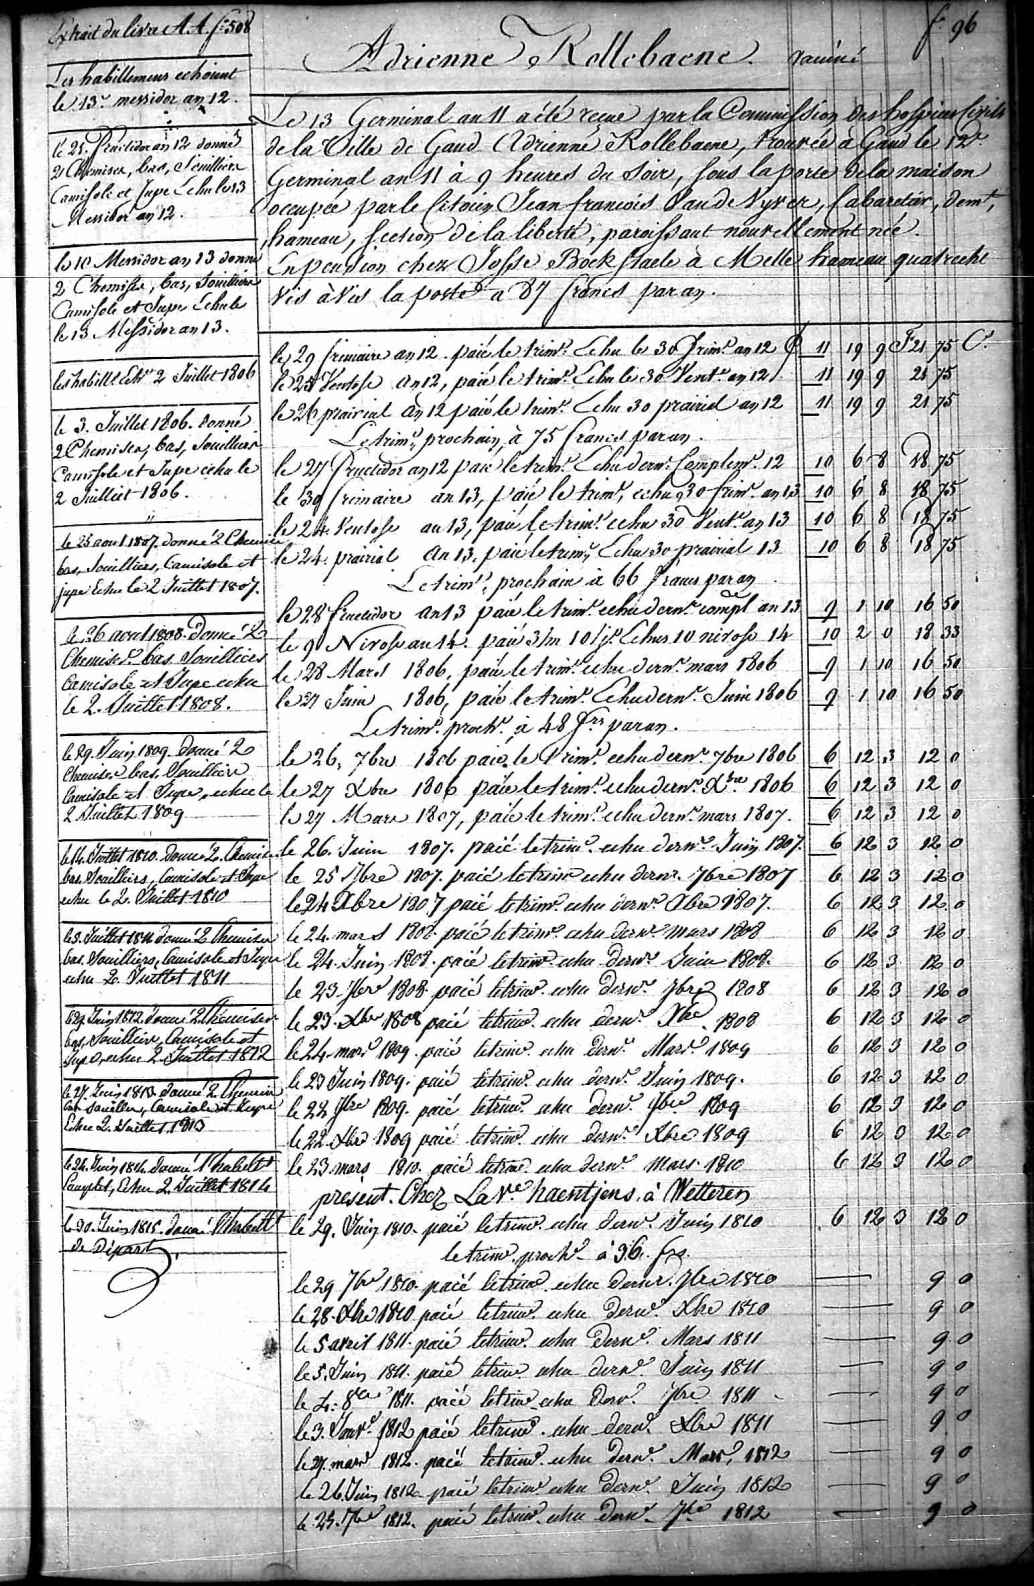 Extrait du livre A.A. f° 508
Les habillemens echoient
le 13e messidor an 12.
le 21. Fructidor an 12 donné
2 Chemises, bas, Souilliers
Camisole et Jupe Echu le 13
Messidor an 12.
le 10 Messidor an 13 donné
2 Chemise, bas, Souilliers
Camisole et Jupe Echu le
le 13 Messidor an 13.
les habill. Ech. 2 Juillet 1806
le 3. Juillet 1806. donné
2 Chemises, bas, Souilliers
Camisole et Jupe echu le
2 Juilliet 1806.
le 25 aout 1807. donné 2 Chemise
bas, Souilliers, Camisole et
jupe Echu le 2 Juillet 1807.
le 26 aout 1808. Donné 2
Chemises bas Souilliers
Camisole et Jupe echu
le 2. Juillet 1808.
le 29. Juin 1809. Donné 2
Chemise bas. Souilliers
Camisole et Jupe, echu le
2 Juillet 1809
le 14. Juillet 1810. donné 2. Chemise
bas. Souilliers, Camisole et Jupe
echu le 2. Juillet 1810
le 3. Juillet 1811 donné 2 Chemises
bas. Souilliers, Camisole et Jupe
echu 2. Juillet 1811
Juin 1812 donné 2 Chemises
bas, Souilliers, Camisole et
Jupe, echu 2. Juillet 1812
le 27. Juin 1813 donné 2 Chemises
bas souillers, Camisole et Jupe
Echu 2. Juillet 1813
le 24. Juin 1814. donné l'habillt
Complet, Echu 2. Juillet 1814
le 30. Juin 1815. donné l'habillt
de Départ
f° 96
Adrienne Rollebaene.
Le 13 Germinal an 11 a été reçue par la Commission des hospices Civils
de la Ville de Gand Adrienne Rollebaene, trouvée à Gand le 12e
Germinal an 11 à 9 heures du Soir, sous la porte de la maison
occupée par le Citoien Jean francois Van de Vyver, Cabaretier, demt,
hameau, section de la liberté, paroissant nouvellement née.
En pension chez Josse Bockstaele à Melle hameau quatrecht
vis à vis la poste a 87 francs par an.
le 29 frimaire an 12. paié le trimr. Echu le 30 frimr. an 12 11 19 9 F 21 75 Cs
le 28 Ventose an 12, paié le trimr. Echu le 30 Vent. an 12. 11 19 9 21 75
le 26 prairial an 12 paié le trimr. Echu 30 prairial an 12 11 19 9 21 75
Le trimr, prochain, à 75 francs par an.
le 27 Fructidor an 12 paié le trimr. Echu dernr. Complemr. 12 10 6 8 18 75
le 30 frimaire an 13, paié le trimr, echu 30 frimr. an 13 10 6 8 18 75
le 24 Ventose an 13, paié le trimr. echu 30 Ventr. an 13 10 6 8 18 75
le 24. prairial an 13. paié le trimr. Echu 30 prairial 13 10 6 8 18 75
Le trimr, prochain à 66 francs par an
le 28 fructidor an 13 paié le trimr. echu dernr. compl an 13 9 1 10 16 50
le 9 Nivose an 14. paié 3/m 10 /j. Echus 10 nivose 14 10 2 0 18 33
le 28 Mars 1806, paié le trimr. echu dernr. mars 1806 9 1 10 16 50
le 27 Juin 1806, paié le trimr. Echu dernr. Juin 1806 9 1 10 16 50
Le trimr. prochr. à 48 frs par an.
le 26, 7bre 1806 paié le trimr. echu dernr. 7bre 1806 6 12 3 12 0
le 27 Xbre 1806 paié le trimr. echu dernr. Xbre 1806 6 12 3 12 0
le 27 Mars 1807, paié le trimr. echu dernr. mars 1807. 6 12 3 12 0
le 26. Juin 1807. paié le trimr. echu dernr. Juin 1807. 6 12 3 12 0
le 25 7bre 1807. paié le trimr echu dernr. 7bre 1807 6 12 3 12 0
le 24 Xbre 1807 paié le trimr. echu dernr. Xbre 1807. 6 12 3 12 0
le 24. mars 1808. paié le trimr. echu dernr mars 1808 6 12 3 12 0
le 24. Juin 1808. paié le trimr. echu dernr. Juin 1808. 6 12 3 12 0
le 23. 7bre 1808 paié le trimr. echu dernr. 7bre 1808 6 12 3 12 0
le 23. Xbre 1808 paié le trimr. echu dernr. Xbre 1808 6 12 3 12 0
le 24. mars 1809. paié le trimr. echu dernr. Mars. 1809 6 12 3 12 0
le 23 Juin 1809. paié le trimr. echu dernr. Juin 1809. 6 12 3 12 0
le 22 7bre 1809. paié le trimr. echu dernr. 7bre 1809 6 12 3 12 0
le 22. Xbre 1809 paié le trimr. echu dernr. Xbre 1809 6 12 3 12 0
le 23 mars 1810. paié le trimr. echu dernr. mars. 1810 6 12 3 12 0
présent. Chez La Ve haentjens. à Wetteren
le 29. Juin 1810. paié le trimr. echu dernr. Juin 1810 6 12 3 12 0
le trimr. prochr. à 36. frs.
le 29 7bre 1810. paié le trimr. echu dernr. 7bre 1810 9 0
le 28. Xbre 1810 paié le trimr. echu dernr. Xbre 1810 9 0
le 5 avril 1811. paié le trimr. echu dernr. Mars 1811 9 0
le 5. Juin 1811. paié le trimr. echu dernr. Juin 1811 9 0
le 4. 8bre 1811. paié le trimr. echu dernr. 7bre 1811 9 0
le 3. Janvr. 1812 paié le trimr. echu dernr. Xbre 1811 9 0
le 27. mars 1812. paié le trimr. echu dernr. Mars. 1812 9 0
le 26. Juin 1812. paié le trimr. echu dernr. Juin 1812 9 0
le 25. 7bre 1812. paié le trimr. echu dernr. 7bre 1812 9 0